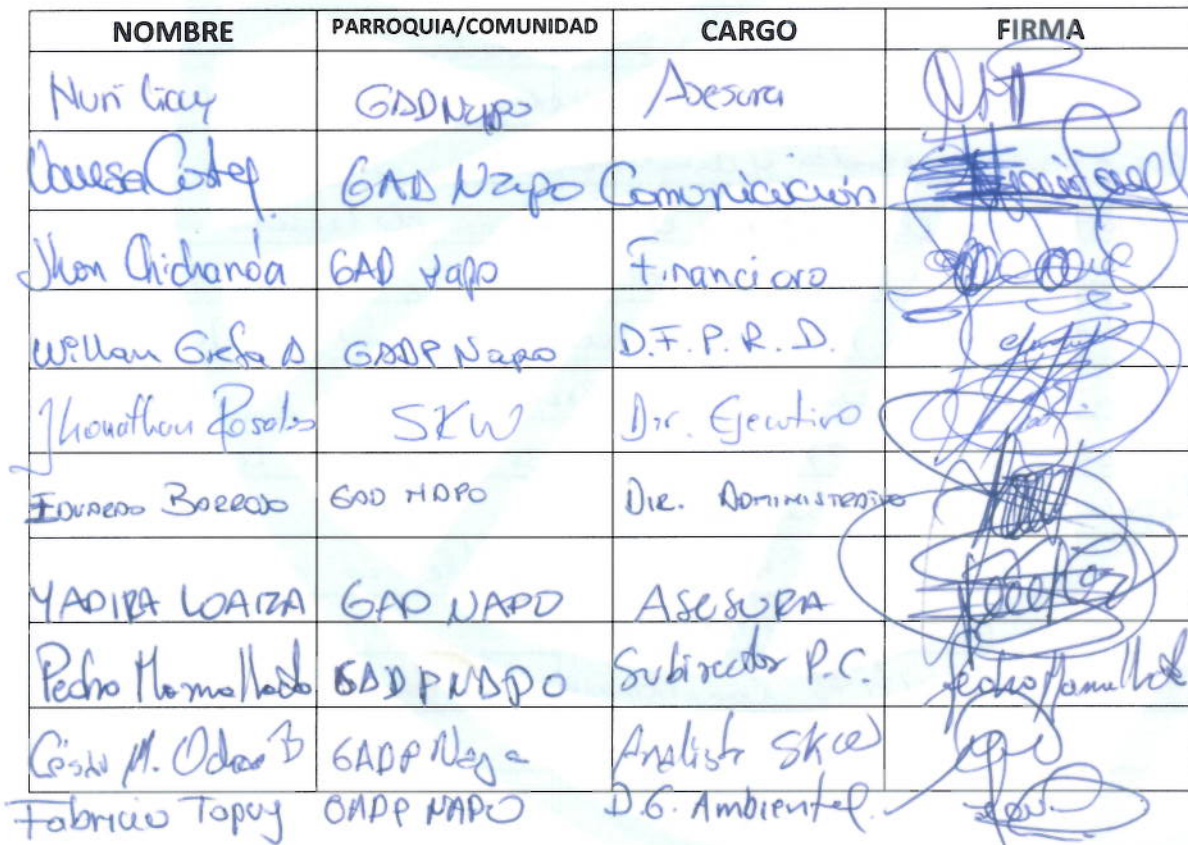 NOMBRE PARROQUIA/COMUNIDAD CARGO FIRMA
Nuri GADNapo Asesora
Vanesa GAD Napo Comunicación
Jhon Chichanda GAD Napo Financiero
Willan Grefa A GADP Napo D.F.P.R.D.
Jhonathan Rosales SKW Dir. Ejecutivo
EDUARDO BORRERO GAD NAPO DIR. ADMINISTRATIVO
YADIRA LOAIZA GAD NAPO ASESORA
Pedro Mamallacta GADPNAPO Subirector P.C. Pedro Mamallacta
César M. GADP Napo Analista SKW
Fabricio Tapuy GADP NAPO D.G. Ambiental